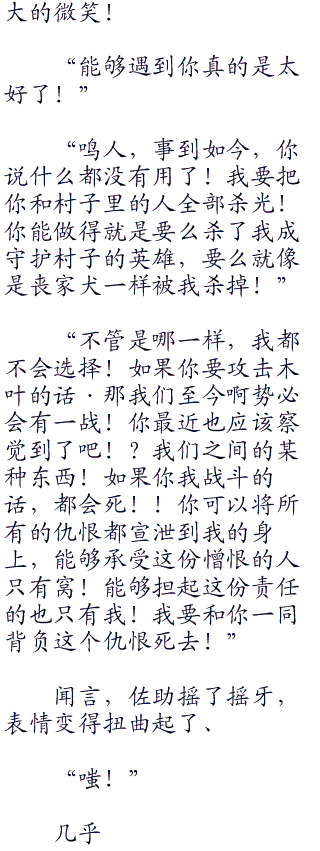 大的微笑！
“能够遇到你真的是太
好了！”
“鸣人，事到如今，你
说什么都没有用了！我要把
你和村子里的人全部杀光！
你能做得就是要么杀了我成
守护村子的英雄，要么就像
是丧家犬一样被我杀掉！”
“不管是哪一样，我都
不会选择！如果你要攻击木
叶的话·那我们至今啊势必
会有一战！你最近也应该察
觉到了吧！？我们之间的某
种东西！如果你我战斗的
话，都会死！！你可以将所
有的仇恨都宣泄到我的身
上，能够承受这份憎恨的人
只有窝！能够担起这份责任
的也只有我！我要和你一同
背负这个仇恨死去！”
闻言，佐助摇了摇牙，
表情变得扭曲起了、
“嗤！”
几乎